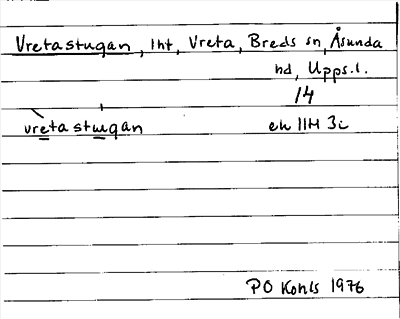 Vretastugan, lht, Vreta, Breds sn, Åsunda
hd, Upps.l.
14
vretastugan ek 11H 3i
PO Kohls 1976